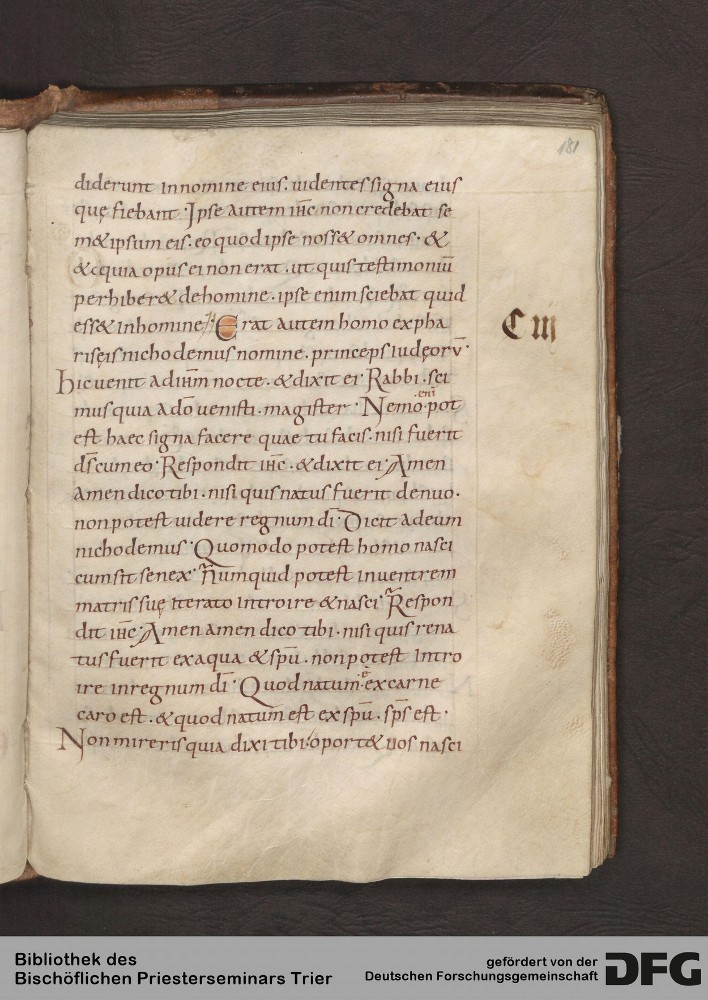 181
diderunt in nomine eius. uidentes signa eius
quę fiebant. Ipse autem ihc non credebat se
m& ipsum eis. eo quod ipse noss& omnes. &
&c quia opus ei non erat. ut quis testimoniū
perhiber& de homine. ipse enim sciebat quid
ess& in homine. Erat autem homo ex pha
C III
risęis nichodemus nomine. princeps iudęorū.
hic uenit ad ihm nocte. & dixit ei. Rabbi. sci
mus quia a dō uenisti. magister. Nemo .eni. pot
est haec signa facere quae tu facis. nisi fuerit
ds cum eo. Respondit ihc. & dixit ei. Amen
amen dico tibi. nisi quis natus fuerit denuo.
non potest uidere regnum dī. Dicit ad eum
nichodemus. Quomodo potest homo nasci
cum sit senex. Numquid potest in uentrem
matris suę iterato introire & nasci. Respon
dit ihc. Amen amen dico tibi. nisi quis rena
tus fuerit ex aqua & spū. non potest intro
ire in regnum dī. Quod natum .ē. ex carne
caro est. & quod natum est ex spū. sps est.
Non mireris quia dixi tibi. oport& uos nasci
Bibliothek des
Bischöflichen Priesterseminars Trier
gefördert von der
Deutschen Forschungsgemeinschaft
DFG